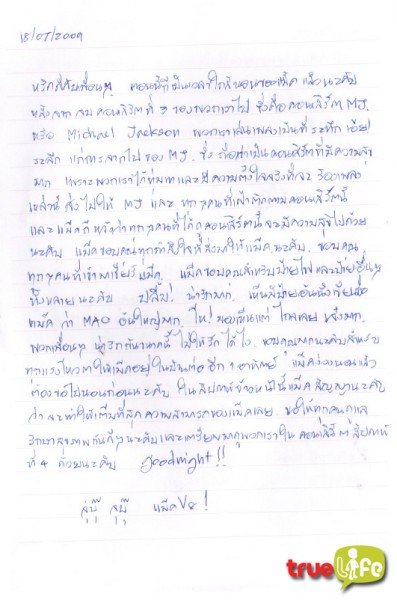 18/07/2009
หวัดดีคับเพื่อนๆ ตอนนี้ก็เป็นเวลาใกล้นอนของแม็ค แล้วนะคับ
หลังจาก จบคอนเสิร์ตที่ 3 ของพวกเราไป ซึ่งคือคอนเสิร์ต MJ.
หรือ Michael Jackson พวกเราเล่นเพลงเป็นที่ระทึก เอ้ย!
ระลึก แก่การจากไปของ MJ. ซึ่ง ถือว่าเป็นคอนเสิร์ตที่มีความสุข
มาก เพราะพวกเราได้ทุ่มเทและมีความตั้งใจจริงที่จะ ร้องเพลง
เหล่านี้ ส่งไปให้ MJ และ ทุกๆคนที่เฝ้าติดตามคอนเสิร์ตนี้
และแม็คก็หวังว่าทุกๆคนที่ได้ดูคอนเสิร์ตนี้จะมีความสุขไปด้วย
นะคับ แม็คขอบคุณทุกกำลังใจที่ส่งมาให้แม็คนะคับ. ขอบคุณ
ทุกๆคนที่เข้ามาเชียร์แม็ค. แม็คขอบคุณสำหรับป้ายไฟและป้ายอื่นๆ
ทั้งหลายนะคับ ปลื้ม! น่ารักมาก. เห็นมีป้ายอันนึงเขียนชื่อ
แม็ค ว่า MAC อันใหญ่มาก. ไห! มองเห็นแต่ไกลเลย เจ๋งมาก.
พวกเพื่อนๆ น่ารักกันขนาดนี้ ไม่ให้รัก ได้ไง. ขอบคุณมากนะคับสำหรับ
ทุกแรงโหวตให้แม็คอยู่ในบ้านต่อ อีก 1 อาทิตย์ แม็คง่วงนอนแล้ว
ต้องขอไปนอนก่อนนะคับ ในสัปดาห์ข้างหน้านี้แม็ค สัญญานะคับ
ว่า จะทำให้เต็มที่สุด ความสามารถของแม็คเลย ขอให้ทุกคนดูแล
รักษาสุขภาพกันดีๆนะคับและเตรียมมาดูพวกเราใน คอนเสิร์ต สัปดาห์
ที่ 4 ด้วยนะคับ Goodnight!!
สู่บู๊ สู่บู๊ แม็ค V8 !
true Life